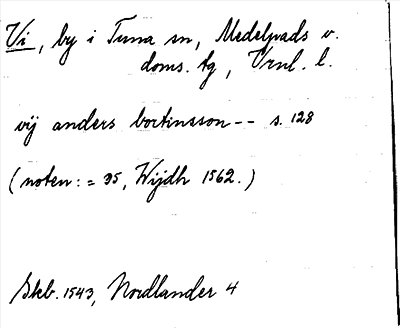 Vi, by i Tuna sn, Medelpads v.
doms. tg, Vrnl. l.
vÿ anders bortinsson -- s. 128
(noten: = 35, Wijdh 1562.)
Skb. 1543, Nordlander 4